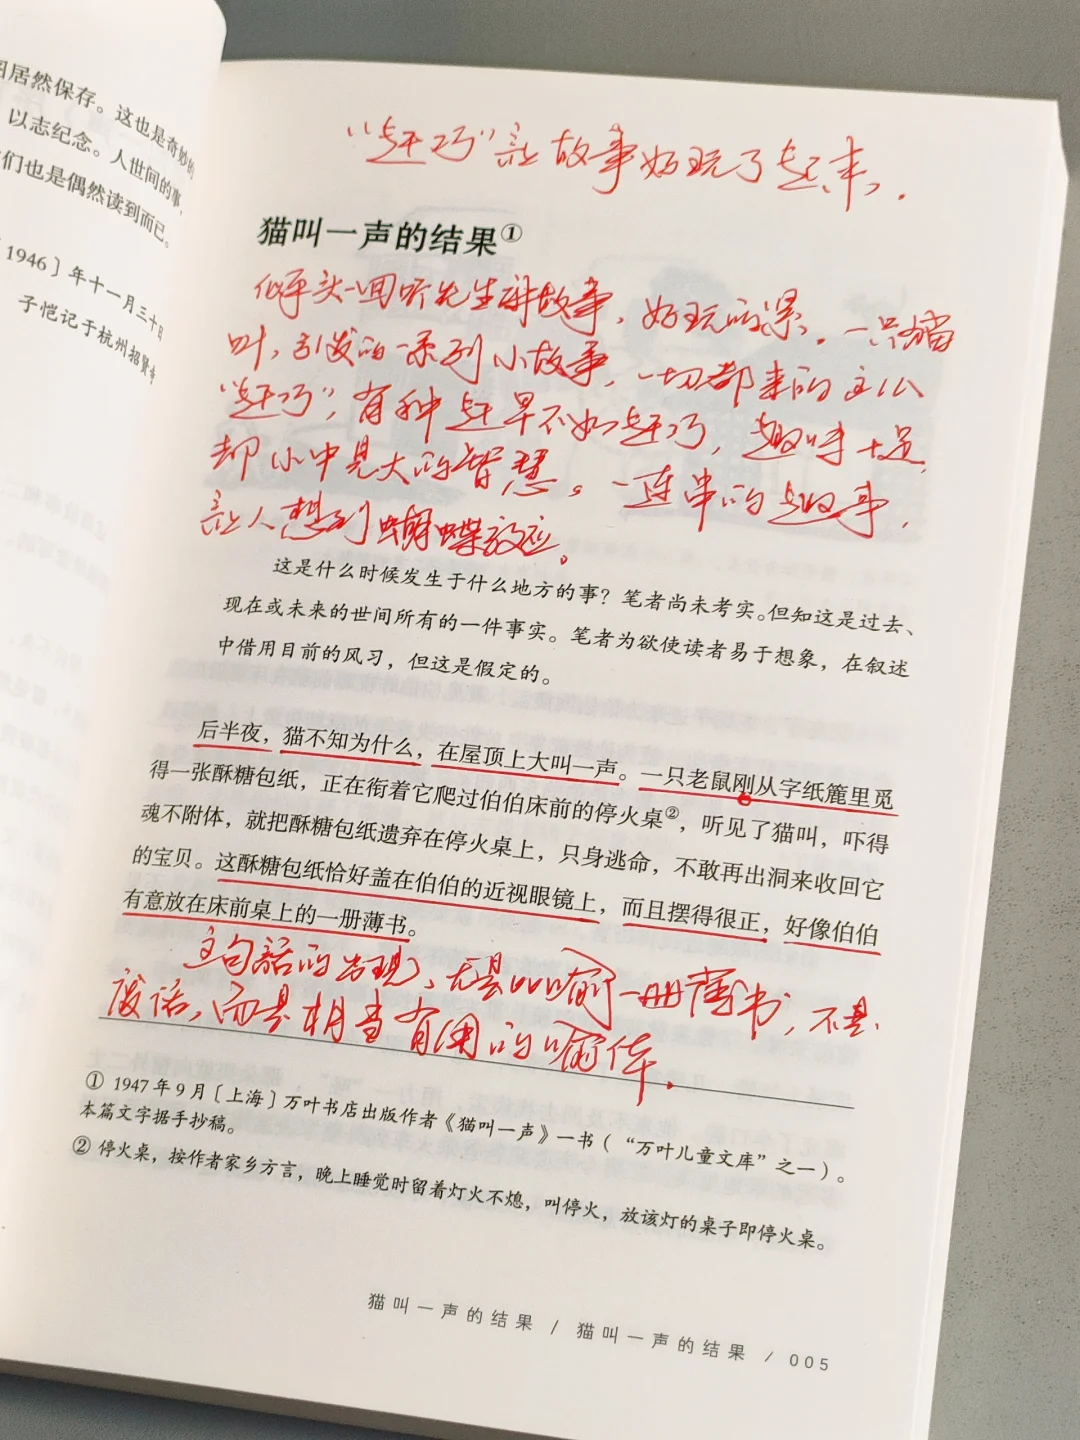 因居然保存。这也是奇妙的
以志纪念。人世间的事,
们也是偶然读到而已。
1946〕年十一月三十日
子恺记于杭州招贤寺
“赶巧”让故事好玩了起来。
猫叫一声的结果①
似乎头一回听先生讲故事,好玩的紧。一只猫
叫,引发的一系列小故事,一切都来的这么
“赶巧”,有种赶早不如赶巧,趣味十足,
却小中见大的智慧。一连串的趣事,
让人想到蝴蝶效应。
这是什么时候发生于什么地方的事?笔者尚未考实。但知这是过去、
现在或未来的世间所有的一件事实。笔者为欲使读者易于想象,在叙述
中借用目前的风习,但这是假定的。
后半夜,猫不知为什么,在屋顶上大叫一声。一只老鼠刚从字纸篦里觅
得一张酥糖包纸,正在衔着它爬过伯伯床前的停火桌②,听见了猫叫,吓得
魂不附体,就把酥糖包纸遗弃在停火桌上,只身逃命,不敢再出洞来收回它
的宝贝。这酥糖包纸恰好盖在伯伯的近视眼镜上,而且摆得很正,好像伯伯
有意放在床前桌上的一册薄书。
这句话的发现,尤是比喻一册薄书,不是
废话,而是相当有用的喻体。
① 1947年9月〔上海〕万叶书店出版作者《猫叫一声》一书(“万叶儿童文库”之一)。
本篇文字据手抄稿。
② 停火桌,按作者家乡方言,晚上睡觉时留着灯火不熄,叫停火,放该灯的桌子即停火桌。
猫叫一声的结果 / 猫叫一声的结果 / 005